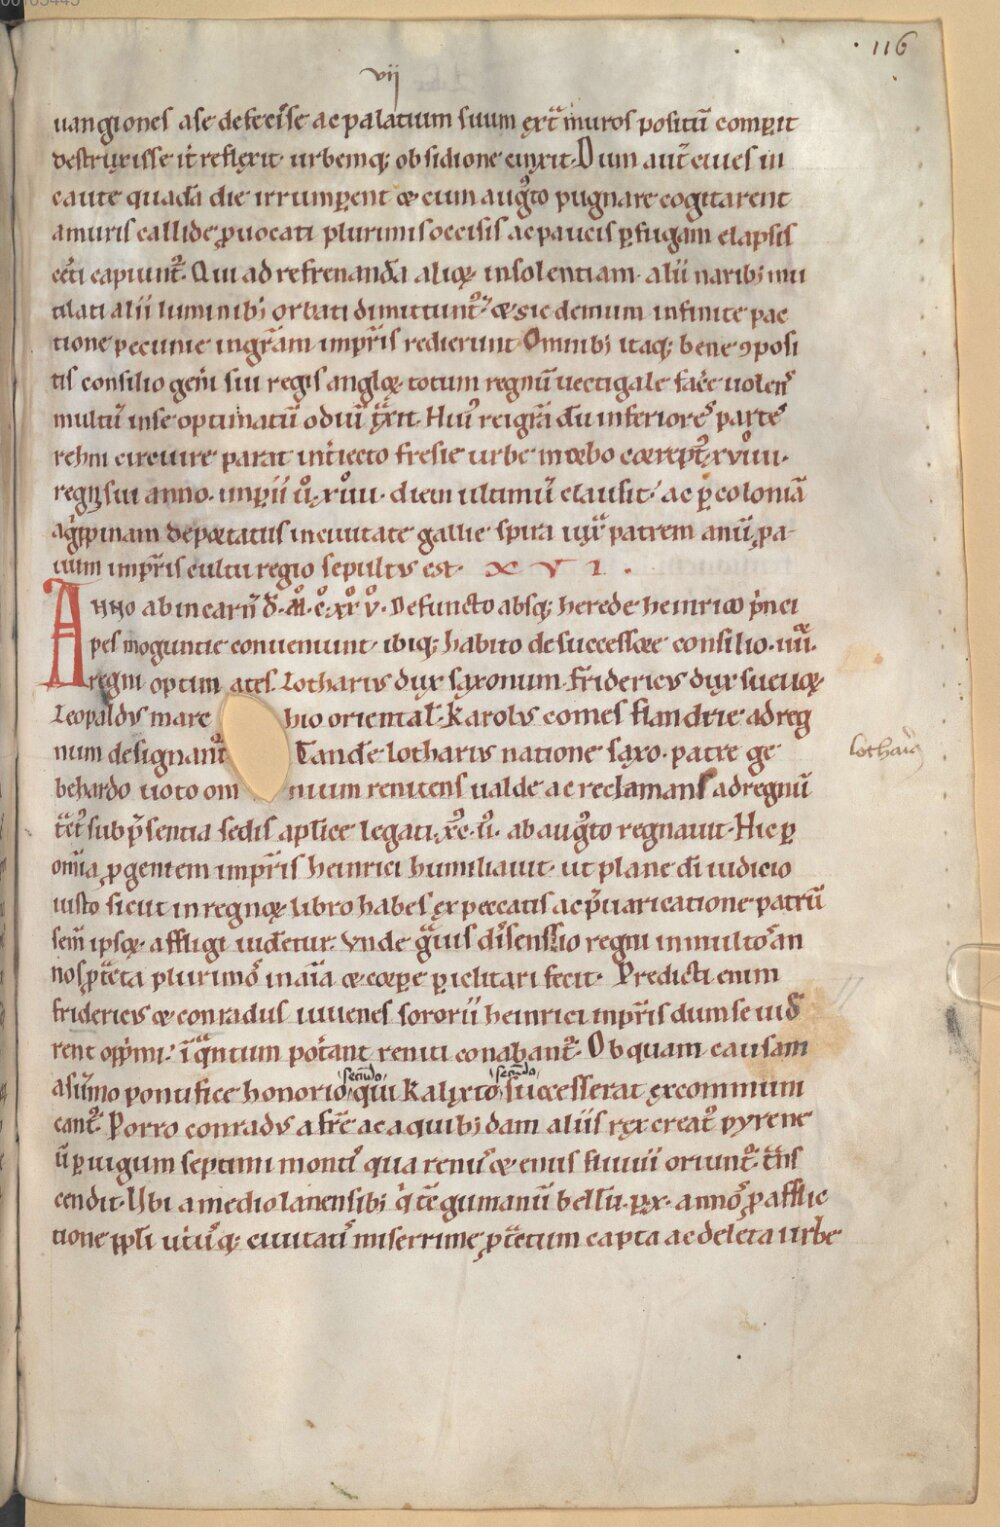 116
vij
uangiones a se defecisse ac palatium suum ext̄ muros positū comp̄it
destruxisse it̄ reflexit urbemq; obsidione cinxit. Dum aut̄ ciues in
caute quadā die irrump̄ent & cum augꝰto pugnare cogitarent
a muris callide ꝓuocati plurimis occisis ac paucis p̱ fugam elapsis
cēti capiunt᷑. Qui ad refrenandā alioꝝ insolentiam. alii narib; mu
tilati alii luminib; orbati dimittunt᷑. & sic demum infinite pac
tione pecunie in gr̄am imp̄ris redierunt. Omnib; itaq; bene ꝯposi
tis consilio gen̄i sui regis angloꝝ totum regnū uectigale fac̄e uolens
multū in se optimatū odiū t̄xit. Huiꝰ rei gr̄a dū inferiores partes
reni circuire parat int̄iecto fresie urbe morbo correptꝰ. xviiii.
regni sui anno. imp̄ii ū. xv̊iii. diem ultimū clausit. ac p̱ coloniā
agͥppinam deportatus in ciuitate gallie spira iuxͣ patrem auū ꝓa
uum imp̄ris cultu regio sepultus est. XVI.
Anno ab incarn̄ d̄. M̊. c̊. xx̊ v̊. Defuncto absq; herede heinrico pͥnci
pes moguntie conueniunt. ibiq; habito de successore consilio. iiii.
regni optimates. Lotharius dux saxonum. Fridericus dux sueuoꝝ
Leopaldus marchio oriental̄. Karolus comes flandrie ad reg
num designant᷑ Tandē lotharius natione saxo. patre ge
behardo uoto omnium renitens ualde ac reclamans ad regnū
t̄ctꝰ sub p̄sentia sedis apl̄ice legati. xc. ii. ab augꝰto regnauit. Hic p̱
om̄ia ꝓgeniem imp̄ris heinrici humiliauit. ut plane dī iudicio
iusto sicut in regnoꝝ libro habes ex peccatis ac p̄uaricatione patrū
sem̄ ipsoꝝ affligi uidetur. Vnde gͣuis discenssio regni in multos an
nos ꝓt̄cta plurimos in aīa & corp̱e p̱iclitari fecit. Predicti enim
fridericus & conradus iuuenes sororii heinrici imp̄ris dum se uid̄
rent opp̄mi. in qͣntum pot̄ant reniti conabant᷑. Ob quam causam
a sūmo pontifice honorio secundo qui Kalixto secundo successerat excommuni
cant᷑. Porro conradus a frē ac a quib;dam aliis rex creatꝰ pyrene
ū p̱ iugum septimi montis qua renus & enus fluuii oriunt᷑. tͣns
cendit. Ubi a mediolanensib; qͥ t̄c gumanū bellū. p̱ x. annos ꝓ afflic
tione ppl̄i utriusq; ciuitatis miserrime ꝓt̄ctum capta ac deleta urbe
lotharius